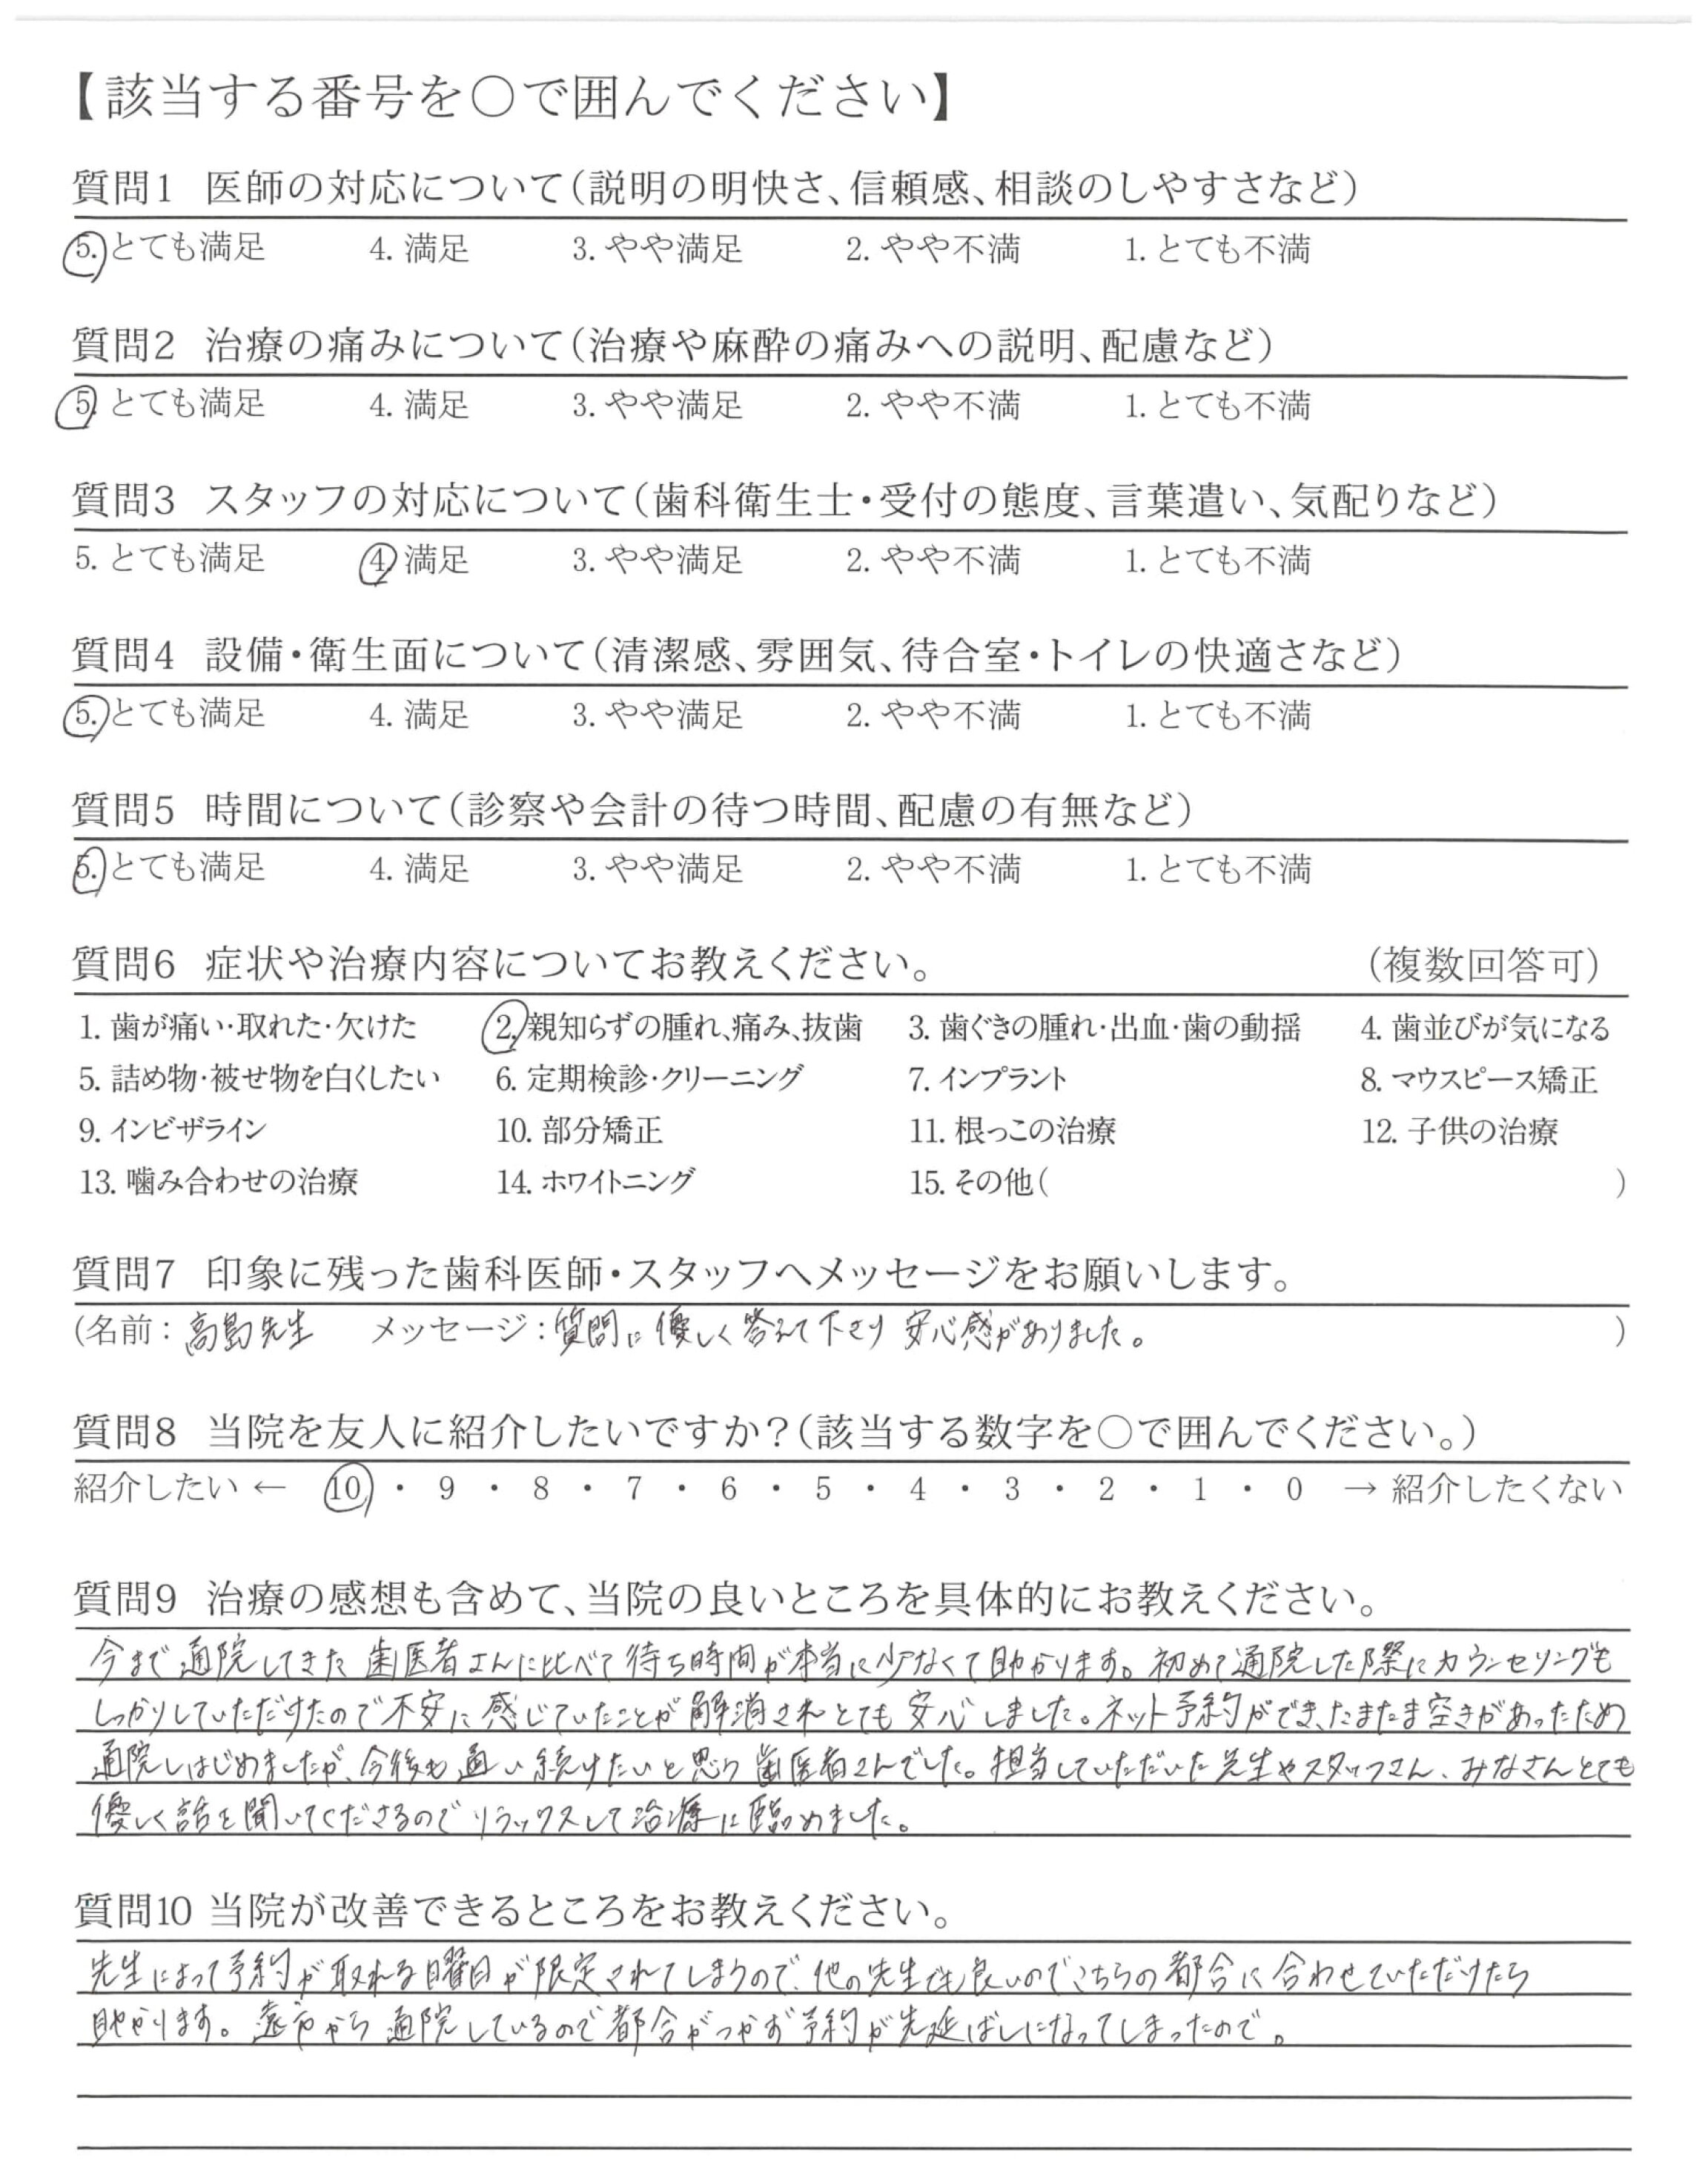 【該当する番号を○で囲んでください】
質問1 医師の対応について(説明の明快さ、信頼感、相談のしやすさなど)
5. とても満足 4. 満足 3. やや満足 2. やや不満 1. とても不満
質問2 治療の痛みについて(治療や麻酔の痛みへの説明、配慮など)
5. とても満足 4. 満足 3. やや満足 2. やや不満 1. とても不満
質問3 スタッフの対応について(歯科衛生士・受付の態度、言葉遣い、気配りなど)
5. とても満足 4. 満足 3. やや満足 2. やや不満 1. とても不満
質問4 設備・衛生面について(清潔感、雰囲気、待合室・トイレの快適さなど)
5. とても満足 4. 満足 3. やや満足 2. やや不満 1. とても不満
質問5 時間について(診察や会計の待つ時間、配慮の有無など)
5. とても満足 4. 満足 3. やや満足 2. やや不満 1. とても不満
質問6 症状や治療内容についてお教えください。 (複数回答可)
1. 歯が痛い・取れた・欠けた 2. 親知らずの腫れ、痛み、抜歯 3. 歯ぐきの腫れ・出血・歯の動揺 4. 歯並びが気になる
5. 詰め物・被せ物を白くしたい 6. 定期検診・クリーニング 7. インプラント 8. マウスピース矯正
9. インビザライン 10. 部分矯正 11. 根っこの治療 12. 子供の治療
13. 噛み合わせの治療 14. ホワイトニング 15. その他( )
質問7 印象に残った歯科医師・スタッフへメッセージをお願いします。
(名前：高島先生 メッセージ：質問に優しく答えて下さり 安心感がありました。 )
質問8 当院を友人に紹介したいですか？(該当する数字を○で囲んでください。)
紹介したい ← 10 ・ 9 ・ 8 ・ 7 ・ 6 ・ 5 ・ 4 ・ 3 ・ 2 ・ 1 ・ 0 → 紹介したくない
質問9 治療の感想も含めて、当院の良いところを具体的にお教えください。
今まで通院してきた歯医者さんに比べて待ち時間が本当に少なくて助かります。初めて通院した際にカウンセリングも
しっかりしていただけたので不安に感じていたことが解消されとても安心しました。ネット予約ができ、たまたま空きがあったため
通院しはじめましたが、今後も通い続けたいと思う歯医者さんでした。担当していただいた先生やスタッフさん、みなさんとても
優しく話を聞いてくださるのでリラックスして治療に臨めました。
質問10 当院が改善できるところをお教えください。
先生によって予約が取れる曜日が限定されてしまうので、他の先生でも良いのでこちらの都合に合わせていただけたら
助かります。遠方から通院しているので都合がつかず予約が先延ばしになってしまったので。